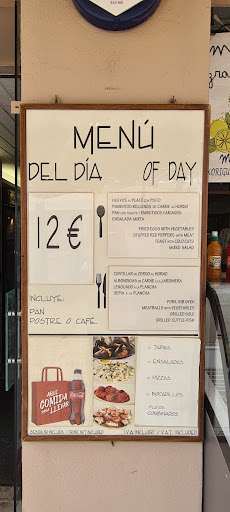 MENÚ
DEL DÍA OF DAY
12€
HUEVOS AL PLATO CON PISTO
PIMIENTOS RELLENOS DE CARNE AL HORNO
PAN CON TOMATE Y EMBUTIDOS VARIADOS
ENSALADA MIXTA
FRIED EGGS WITH VEGETABLES
STUFFED RED PEPPERS WITH MEAT
TOAST WITH COLDCUTS
MIXED SALAD
COSTILLAR DE CERDO AL HORNO
ALBONDIGAS DE CARNE A LA JARDINERA
LENGUADO A LA PLANCHA
SEPIA A LA PLANCHA
PORK RIB OVEN
MEATBALLS WITH VEGETABLES
GRILLED SOLE
GRILLED CUTTLE-FISH
INCLUYE:
PAN
POSTRE O CAFE
AQUÍ
COMIDA
PARA
LLEVAR
Coca-Cola
TAPAS
ENSALADAS
PIZZAS
BOCADILLOS
PLATOS
COMBINADOS
BEBIDA NO INCLUIDA / DRINK NOT INCLUDED
I.V.A INCLUIDO / V.A.T. INCLUDED